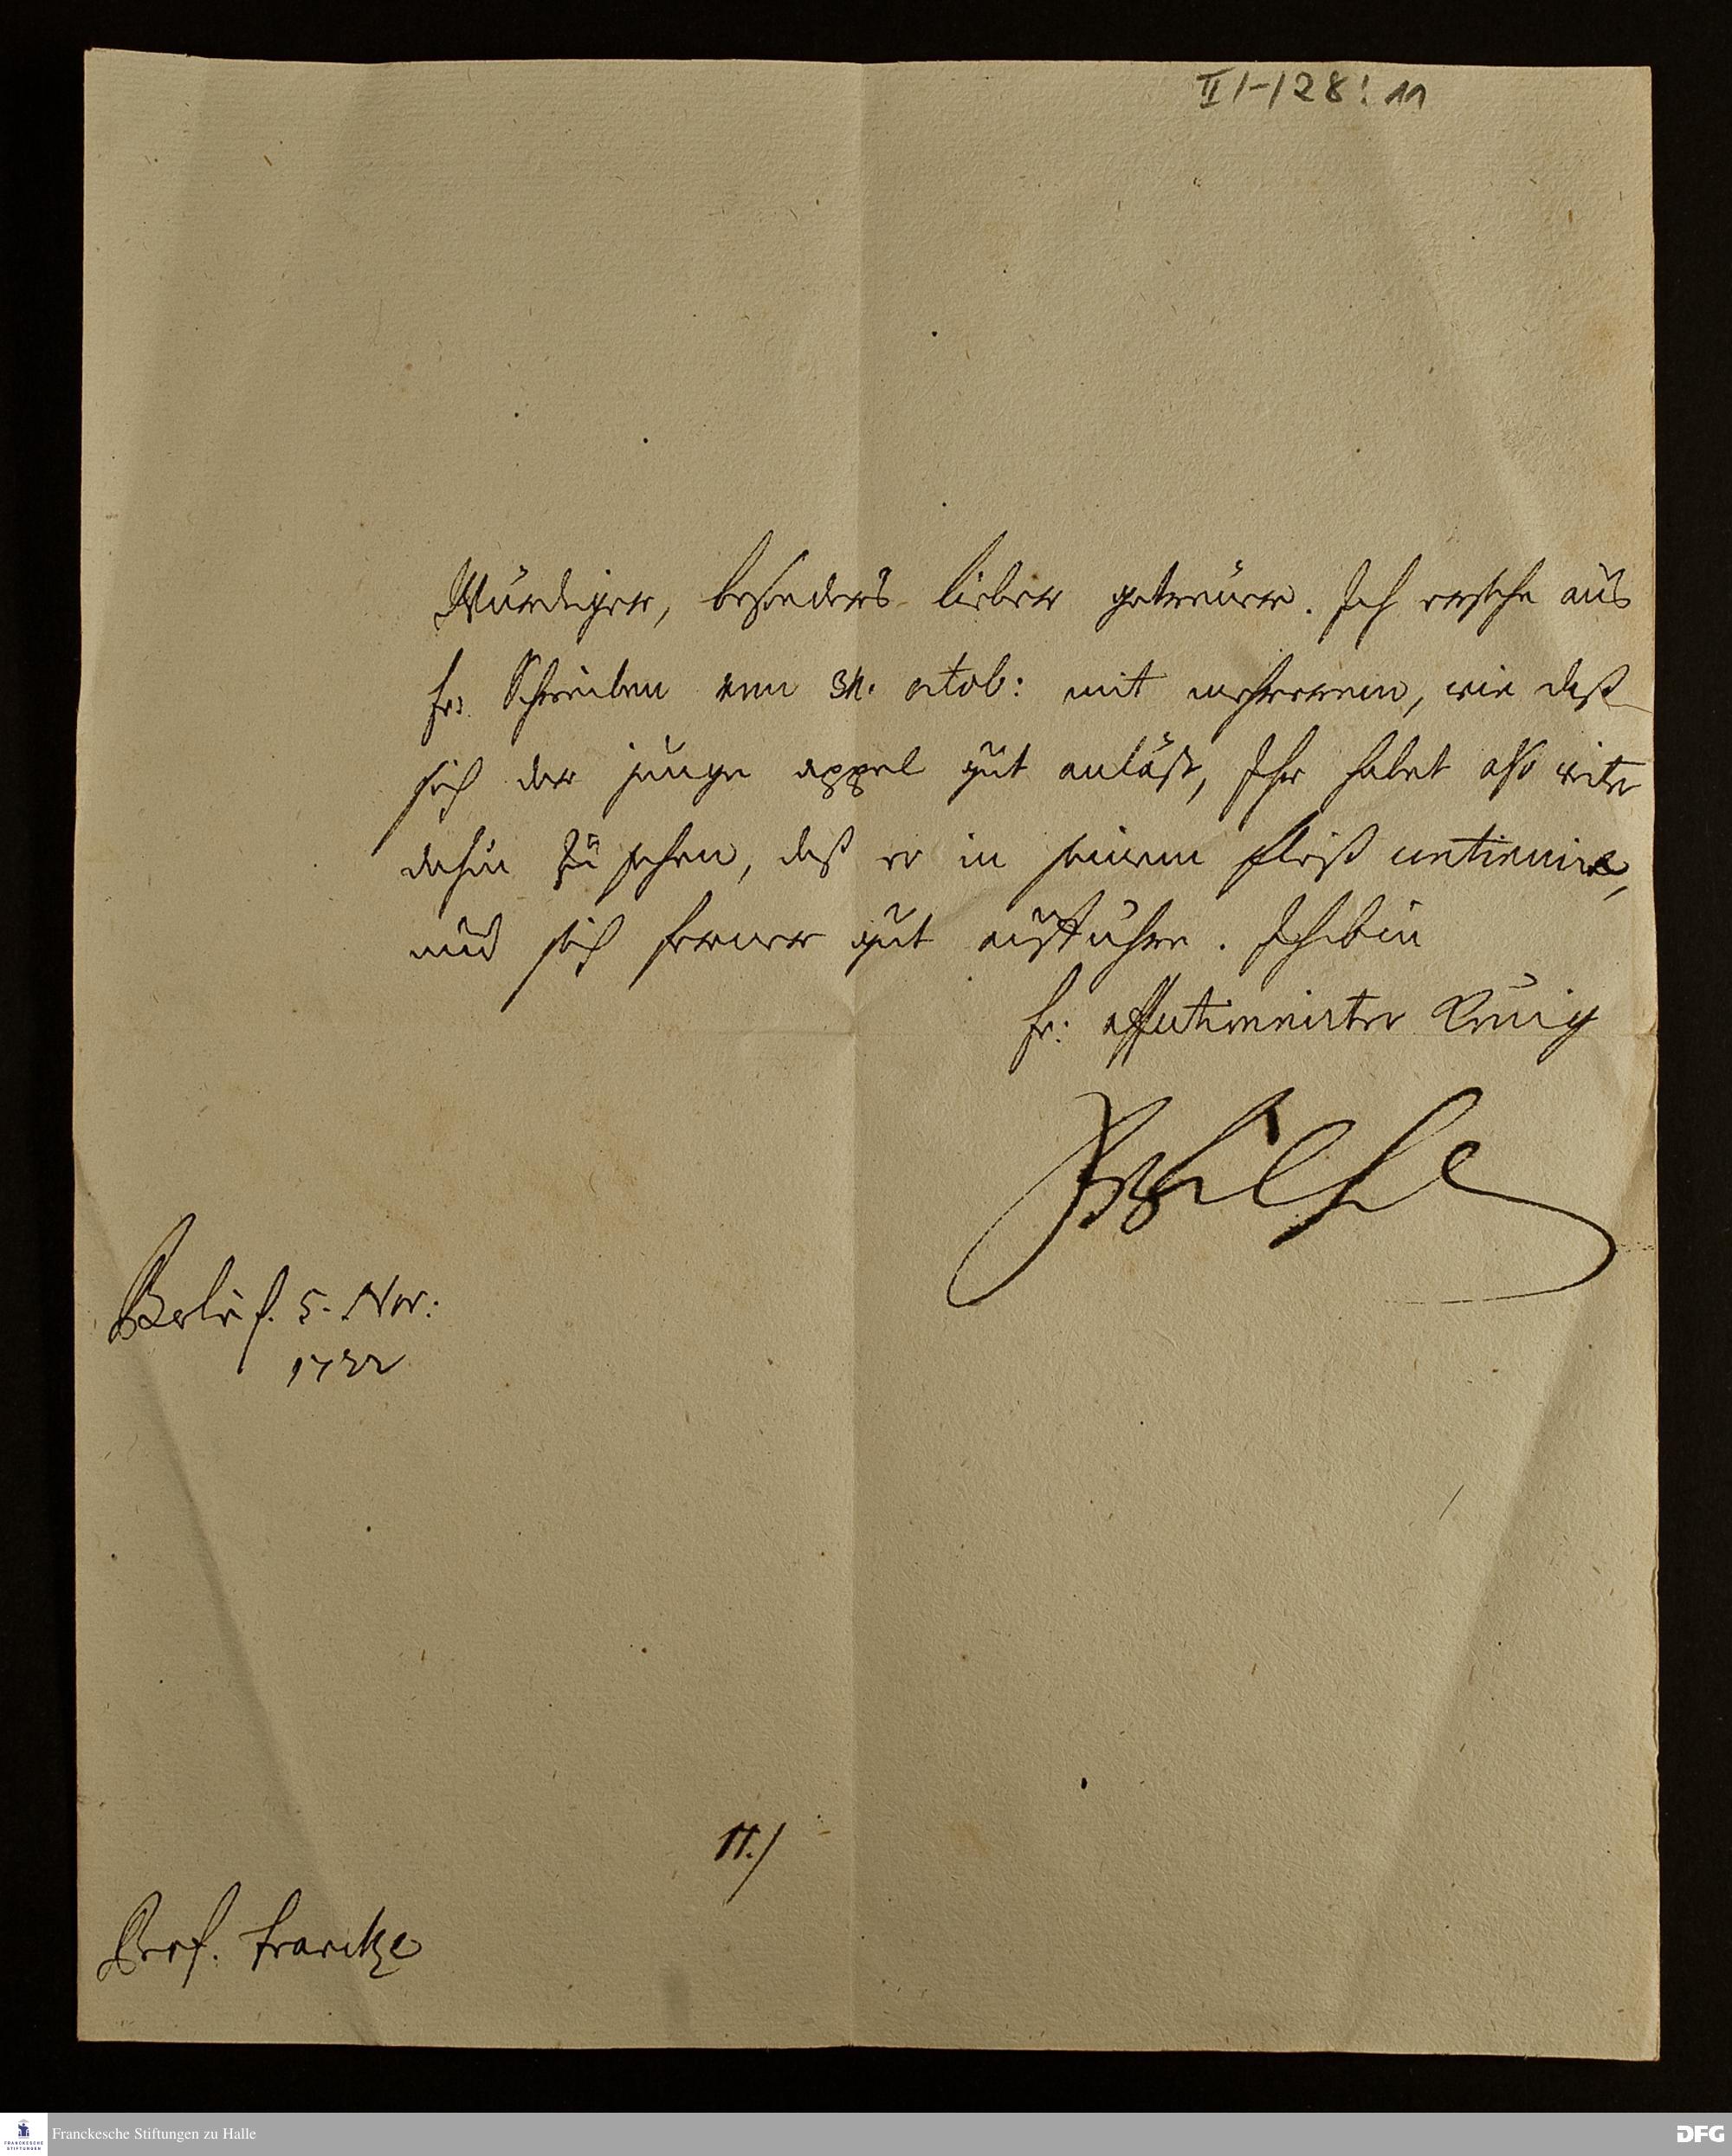 II/-/28: 11
Würdiger, besonders lieber getreuer. Ich ersehe aus
Schreiben vom 31. octob: mit mehrerem, wie daß
sich der junge appel gut anläßt, Ihr habet also weiter
dahin zu sehen, daß er in seinem fleiß continuire,
und sich ferner gut aufführe. Ich bin
Er: affectionirter König
FrWilhelm
Berlin d. 5. Nov:
1722
11./
Prof. Francke
Franckesche Stiftungen zu Halle
FRANCKESCHE
STIFTUNGEN
DFG